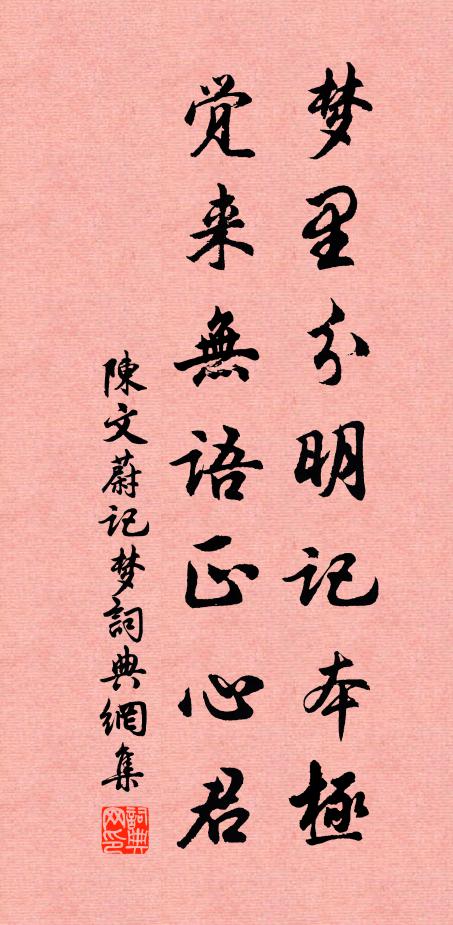 梦里分明记本极
觉来無語正心君
陳文蔚记梦詞典網集
詞典网印